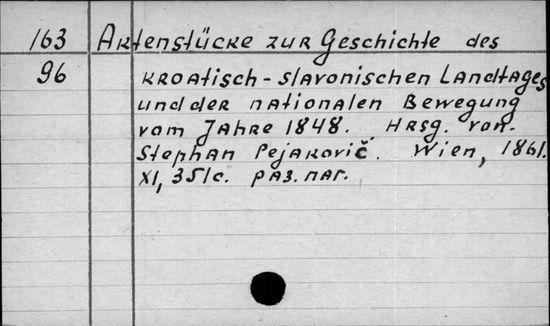 163 Aktenstücke zur Geschichte des
96 kroatisch-slavonischen Landtages
und der nationalen Bewegung
vom Jahre 1848. Hrsg. von.
Stephan Pejakovič. Wien, 1861.
XI, 351c. раз. паг.